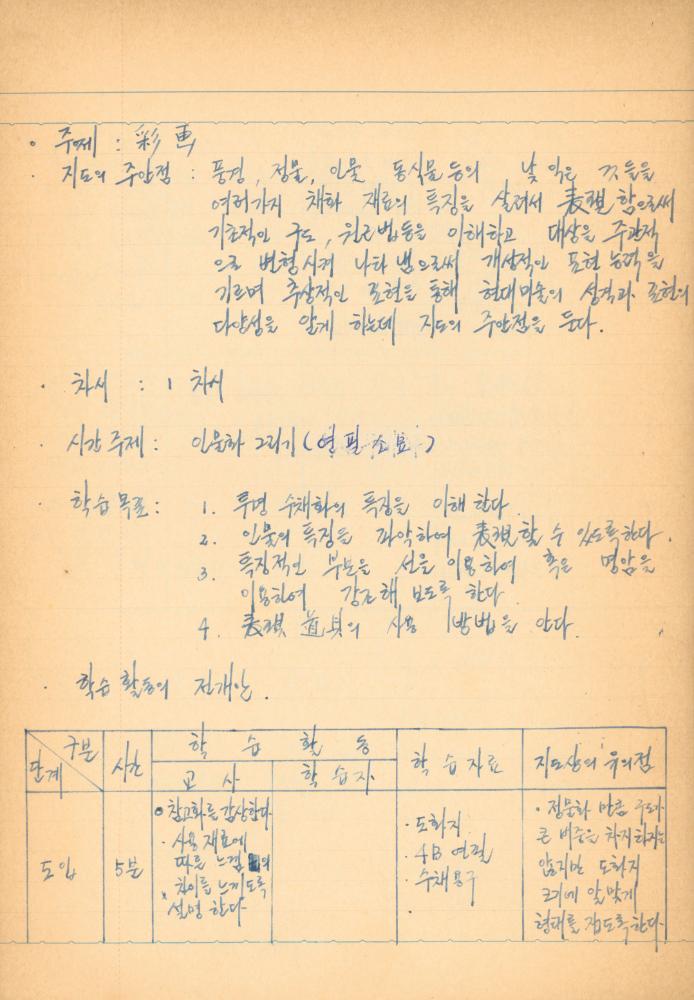 · 주제 : 彩画
· 지도의 주안점 : 풍경, 정물, 인물, 동식물 등의 낯 익은 것들을
여러가지 채화 재료의 특징을 살려서 表現 함으로써
기초적인 구도, 원근법등을 이해하고 대상을 주관적
으로 변형시켜 나타 냄으로써 개성적인 표현 능력을
기르며 추상적인 표현을 통해 현대미술의 성격과 표현의
다양성을 알게 하는데 지도의 주안점을 둔다.
· 차시 : 1 차시
· 시간 주제 : 인물화 그리기 (연필소묘)
· 학습 목표 : 1. 투명 수채화의 특징을 이해 한다.
2. 인물의 특징을 파악하여 表現 할 수 있도록 한다.
3. 특징적인 부분을 선을 이용하여 혹은 명암을
이용하여 강조해 보도록 한다.
4. 表現 道具의 사용 방법을 안다.
· 학습 활동의 전개안.
구분 단계
시간
학 습 활 동
교 사
학 습 자
학 습 자료
지도상의 유의점
도입
5분
· 참고화를 감상한다
· 사용 재료에
따른 느낌의
차이를 느끼도록
설명 한다
· 도화지
· 4B 연필
· 수채용구
· 정물화 만큼 구도가
큰 비중을 차지하지는
않지만 도화지
크기에 알맞게
형태를 잡도록한다.